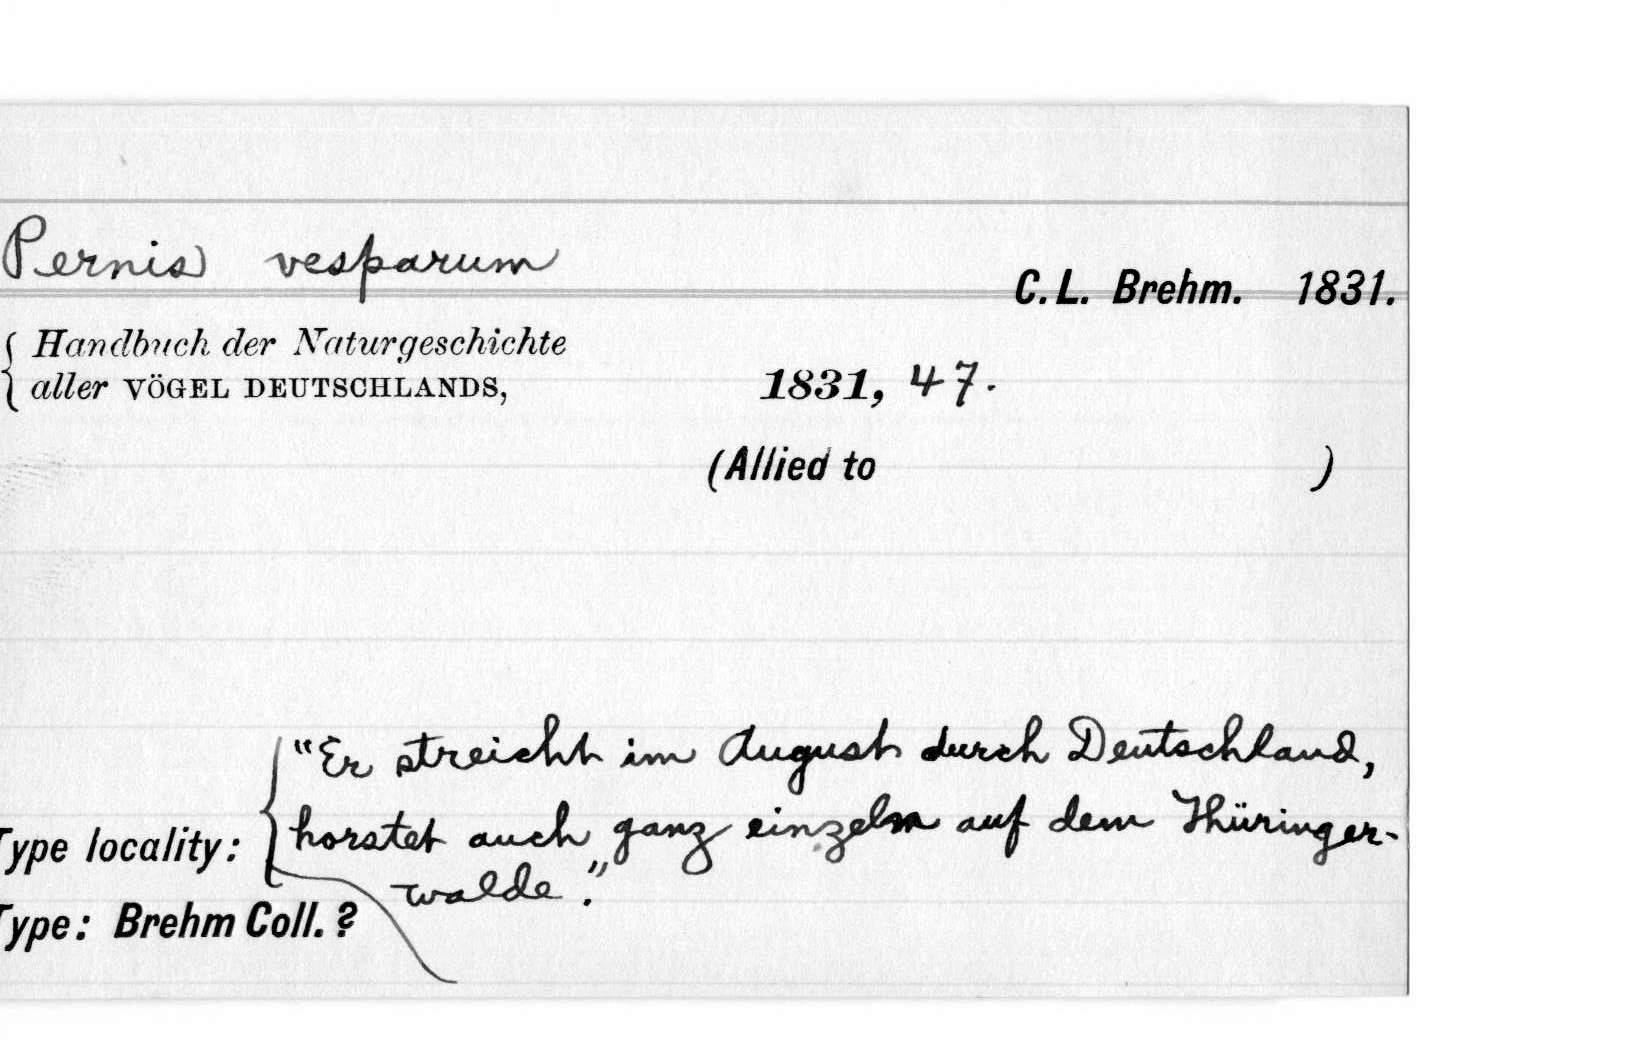 Pernis vesparum
C. L. Brehm. 1831.
Handbuch der Naturgeschichte
aller VÖGEL DEUTSCHLANDS, 1831, 47.
(Allied to )
"Er streicht im August durch Deutschland,
Type locality: horstet auch ganz einzeln auf dem Thüringer-
walde."
Type: Brehm Coll. ?